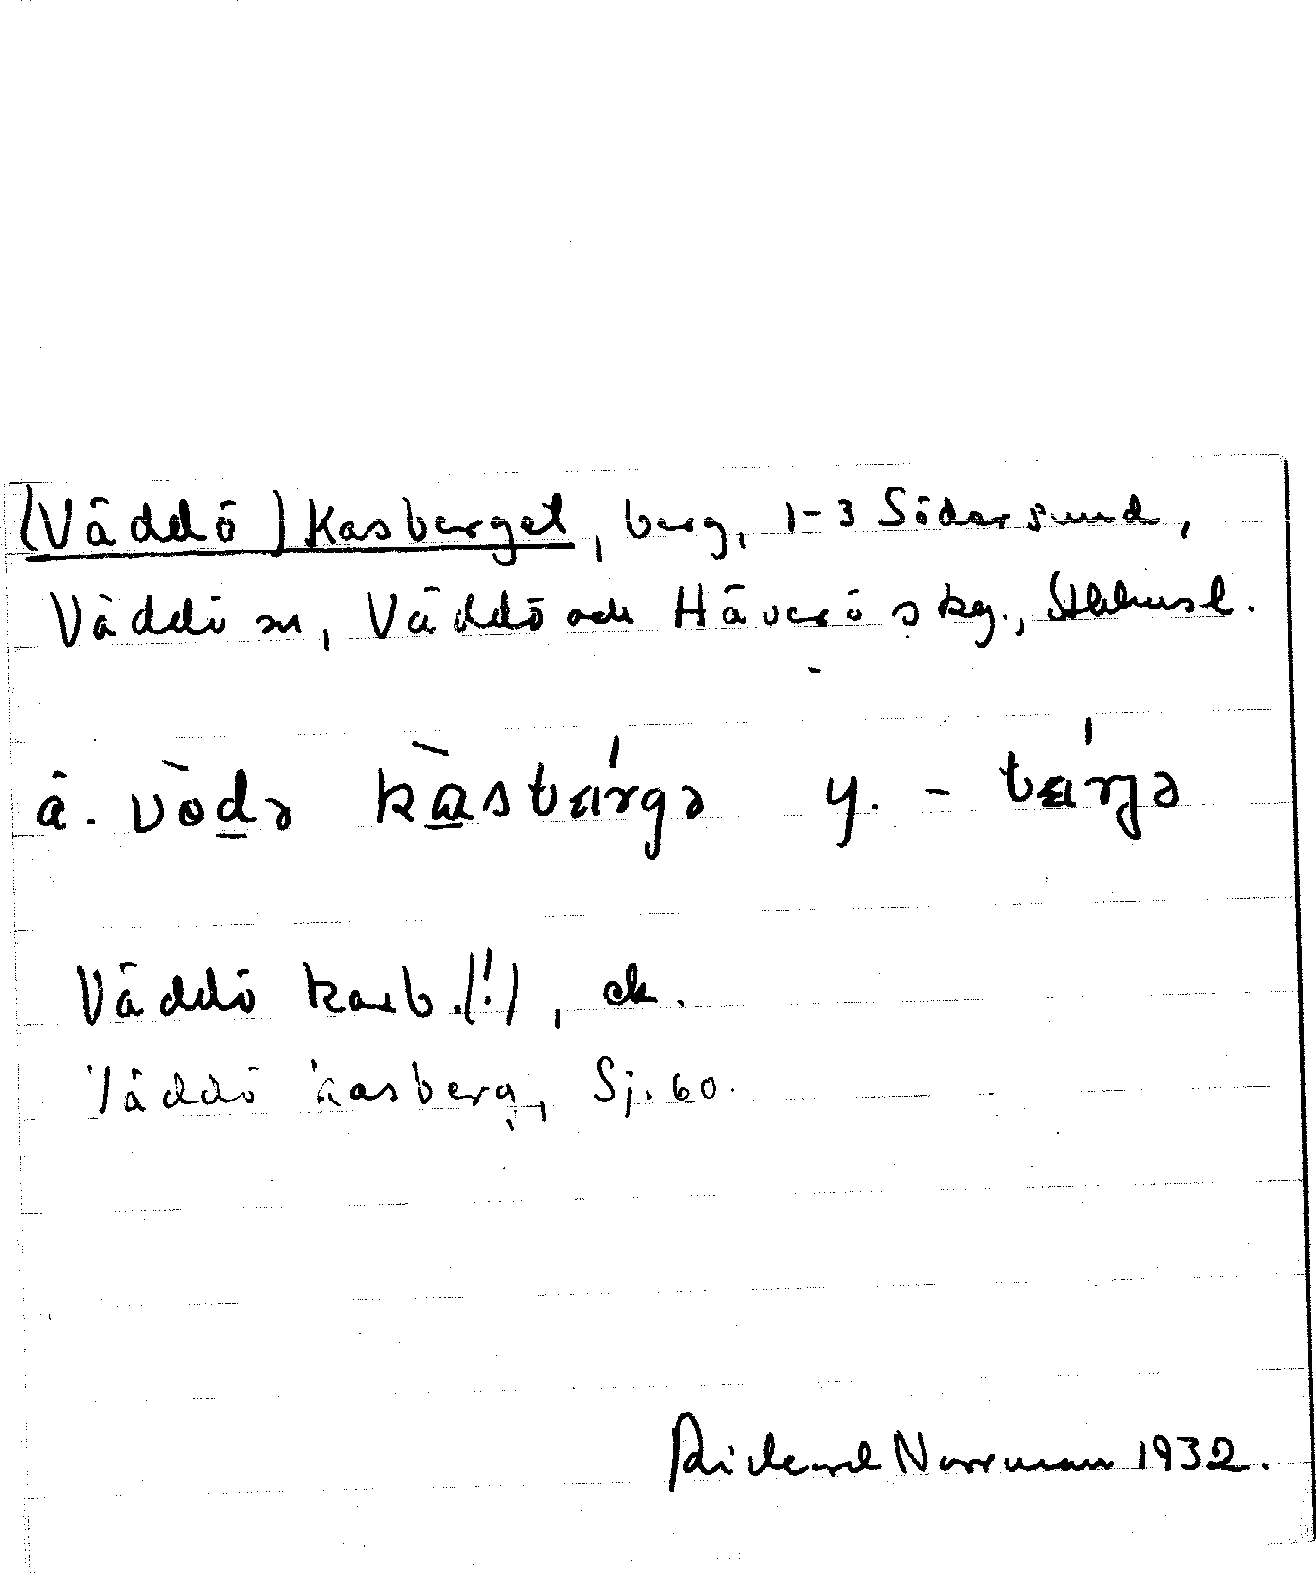 (Väddö) Kasberget, berg, 1-3 Södersund,
Väddö sn, Väddö och Häverö skg., Sthlmsl.
ä. vö̀də kàsbǽrgə y. - bǽrjə
Väddö kasb.(!), ek.
Väddö kasberg, Sj. 60.
Rickard Norrman 1932.